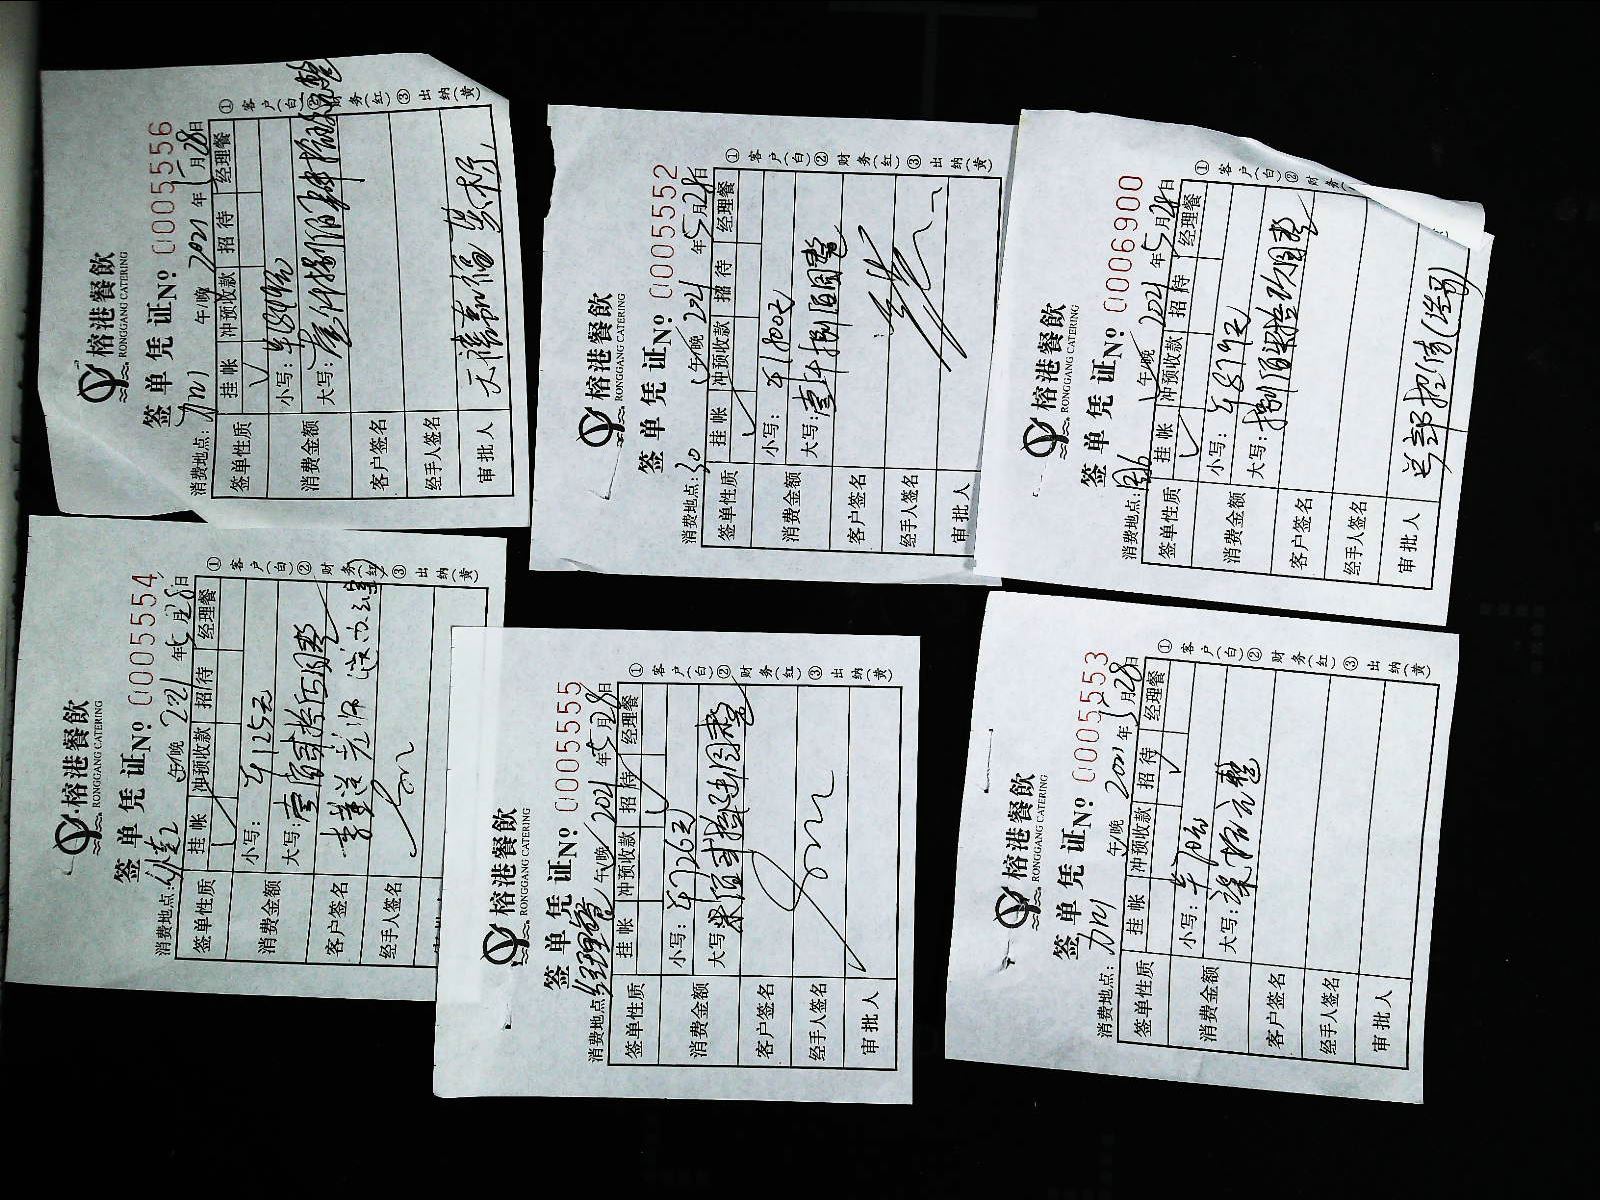 榕港餐飲
RONGGANG CATERING
签单凭证 № 0005556
消费地点: 午/晚 2021 年 5 月 28 日
签单性质 挂帐 冲预收款 招待 经理餐
消费金额 小写:
大写:
客户签名
经手人签名
审批人
①客户(白)②财务(红)③出纳(黄)
榕港餐飲
RONGGANG CATERING
签单凭证 № 0005552
消费地点: 30 午/晚 2021 年 5 月 28 日
签单性质 挂帐 冲预收款 招待 经理餐
消费金额 小写: ¥1800元
大写: 壹仟捌佰圆整
客户签名
经手人签名
审批人
①客户(白)②财务(红)③出纳(黄)
榕港餐飲
RONGGANG CATERING
签单凭证 № 0006900
消费地点: 午/晚 2021 年 5 月 28 日
签单性质 挂帐 冲预收款 招待 经理餐
消费金额 小写:
大写:
客户签名
经手人签名
审批人
①客户(白)②财务
榕港餐飲
RONGGANG CATERING
签单凭证 № 0005554
消费地点: 午/晚 2021 年 5 月 28 日
签单性质 挂帐 冲预收款 招待 经理餐
消费金额 小写: ¥125元
大写: 壹佰贰拾伍圆整
客户签名
经手人签名
①客户(白)②财务(红)③出纳(黄)
榕港餐飲
RONGGANG CATERING
签单凭证 № 0005555
消费地点: 经理餐 午/晚 2021 年 5 月 28 日
签单性质 挂帐 冲预收款 招待 经理餐
消费金额 小写: ¥726元
大写: 柒佰贰拾陆圆整
客户签名
经手人签名
审批人
①客户(白)②财务(红)③出纳(黄)
榕港餐飲
RONGGANG CATERING
签单凭证 № 0005553
消费地点: 午/晚 2021 年 5 月 28 日
签单性质 挂帐 冲预收款 招待 经理餐
消费金额 小写:
大写:
客户签名
经手人签名
审批人
①客户(白)②财务(红)③出纳(黄)